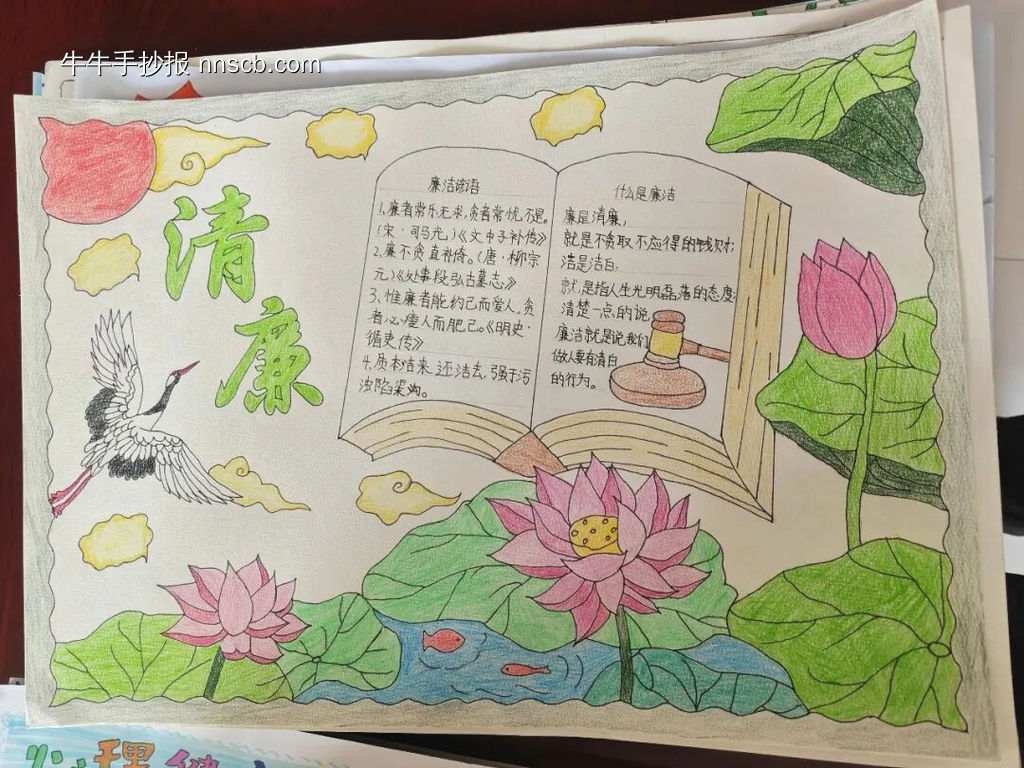 牛牛手抄报 nnscb.com
清
廉
廉洁谚语
1、廉者常乐无求,贪者常忧不足。
(宋·司马光)《文中子补传》
2、廉不贪直补倚。(唐·柳宗
元)《处事段弘古墓志》
3、惟廉者能约己而爱人,贪
者必瘗人而肥己。《明史·
循吏传》
4、质本洁来还洁去,强于污
浊陷渠沟。
什么是廉洁
廉是清廉,
就是不贪取不应得的钱财;
洁是洁白,
就是指人生光明磊落的态度
清楚一点的说,
廉洁就是说我们
做人要有清白
的行为。
心理健